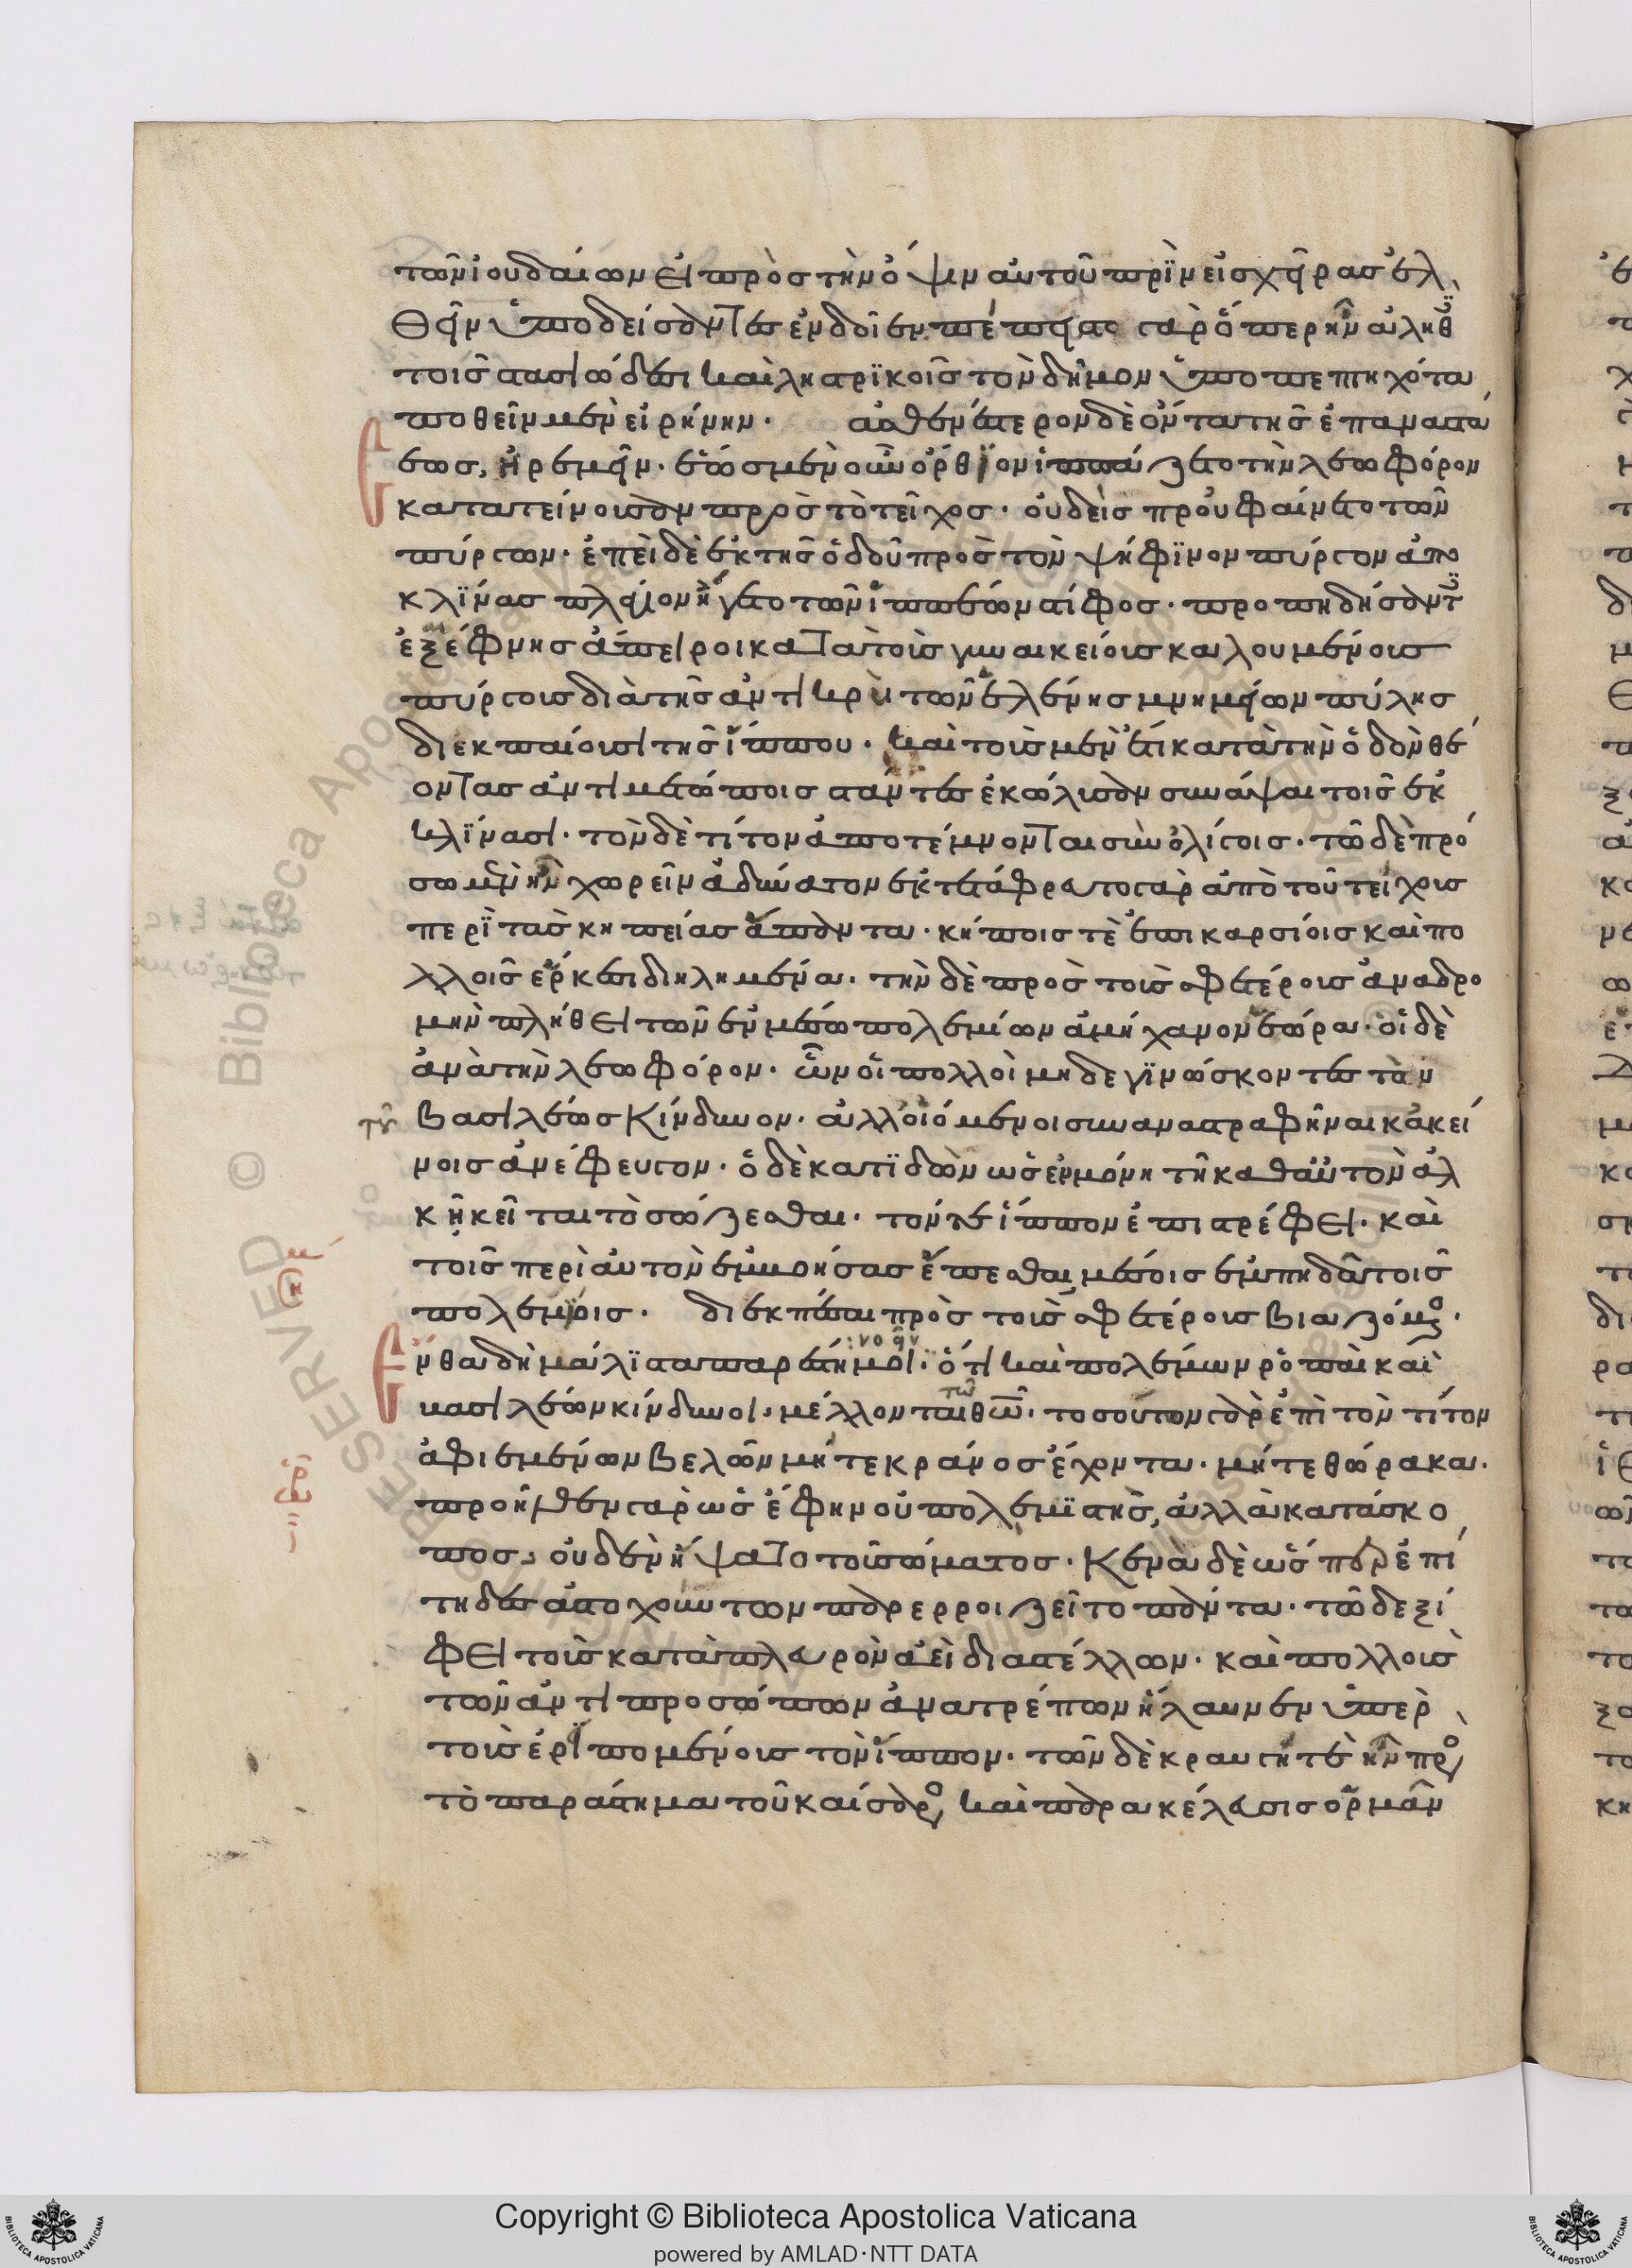 τῶν ἰουδαίων εἰ πρὸς τὴν ὄψιν αὐτοῦ πρὶν εἰς χεῖρας ἐλ
θεῖν ὑποδείσαντες ἐνδοῖεν. πέπειστο γὰρ ὅπερ ἦν ἀληθὲς
τοῖς στασιώδεσι καὶ ληστρικοῖς τὸν δῆμον ὑποπεπτηχότα
ποθεῖν μὲν εἰρήνην. ἀσθενέστερον δὲ ὄντα τῆς ἐπαναστά
σεως, ἠρεμεῖν. ἕως μὲν οὖν ὄρθϊον ἱππάζετο τὴν λεωφόρον
κατατείνουσαν πρὸς τὸ τεῖχος. οὐδεὶς προὐφαίνετο τῶν
πύργων. ἐπεὶ δὲ ἐκ τῆς ὁδοῦ πρὸς τὸν ψήφϊνον πύργον ἀπο
κλϊνας πλάγιον ἦγε τὸ τῶν ἱππέων στίφος. προπηδήσαντες
ἐξέφνης ἄπειροι κατὰ τοὺς γυναικείους καλουμένους
πύργους διὰ τῆς ἀντικρὺ τῶν ἑλένης μνημείων πύλης
διεκπαίουσι τῆς ἵππου. καὶ τοὺς μὲν ἔτι κατὰ τὴν ὁδὸν θέ
οντας ἀντιμετώπους στάντες ἐκώλυσαν συνάψαι τοῖς ἐκ
κλϊνασι. τὸν δὲ τίτον ἀποτέμνονται σὺν ὀλίγοις. τῶ δὲ πρό
σω μὲν ἦν χωρεῖν ἀδύνατον ἐκτετάφρευτο γὰρ ἀπὸ τοῦ τείχους
περὶ τὰς κηπείας ἅπαντα. κήποις τὲ ἐπικαρσίοις καὶ πο
λλοῖς ἕρκεσι διηλημένα. τὴν δὲ πρὸς τοὺς σφετέρους ἀναδρο
μὴν πλήθει τῶν ἐν μέσω πολεμίων ἀμήχανον ἑώρα. οἱ δὲ
ἀνὰ τὴν λεωφόρον. ὧν οἱ πολλοὶ μηδὲ γϊνώσκοντες τὸν
τοῦ βασιλέως κίνδυνον. ἀλλ' οἰόμενοι συναναστραφῆναι κἀκεί
νους ἀνέφευγον. ὁ δὲ κατϊδὼν ὡς ἐν μόνη τῆ καθ' αὑτὸν ἀλ
κῆ κεῖται τὸ σώζεσθαι. τόν τε ἵππον ἐπιστρέφει. καὶ
τοῖς περὶ αὐτὸν ἐμβοήσας ἕπεσθαι, μέσοις ἐμπηδᾶ τοῖς
πολεμίοις. διεκπέσαι πρὸς τοὺς σφετέρους βιαζόμενος.
ἔνθα δὴ μάλϊστα παρέστη μοι νοεῖν. ὅτι καὶ πολέμων ῥοπαὶ καὶ
βασιλέων κίνδυνοι. μέλλονται τῶ θεῶ. τοσούτων γὰρ ἐπὶ τὸν τίτον
ἀφιεμένων βελῶν μήτε κράνος ἔχοντα. μήτε θώρακα.
προῆλθεν γὰρ ὡς ἔφην οὐ πολεμϊστὴς, ἀλλὰ κατάσκο
πος. οὐδὲν ἥψατο τοῦ σώματος. κενὰ δὲ ὥσπερ ἐπί
τηδες ἀστοχούντων παρερροιζεῖτο πάντα. τῶ δὲ ξί
φει τοὺς κατὰ πλευρὸν ἀεὶ διαστέλλων. καὶ πολλοὺς
τῶν ἀντιπροσώπων ἀνατρέπων ἤλαυνεν ὑπὲρ
τοὺς ἐρϊπομένους τὸν ἵππον. τῶν δὲ κραυγή τὲ ἦν πρὸς
τὸ παράστημα τοῦ καίσαρος καὶ παρακέλευσις ὁρμᾶν